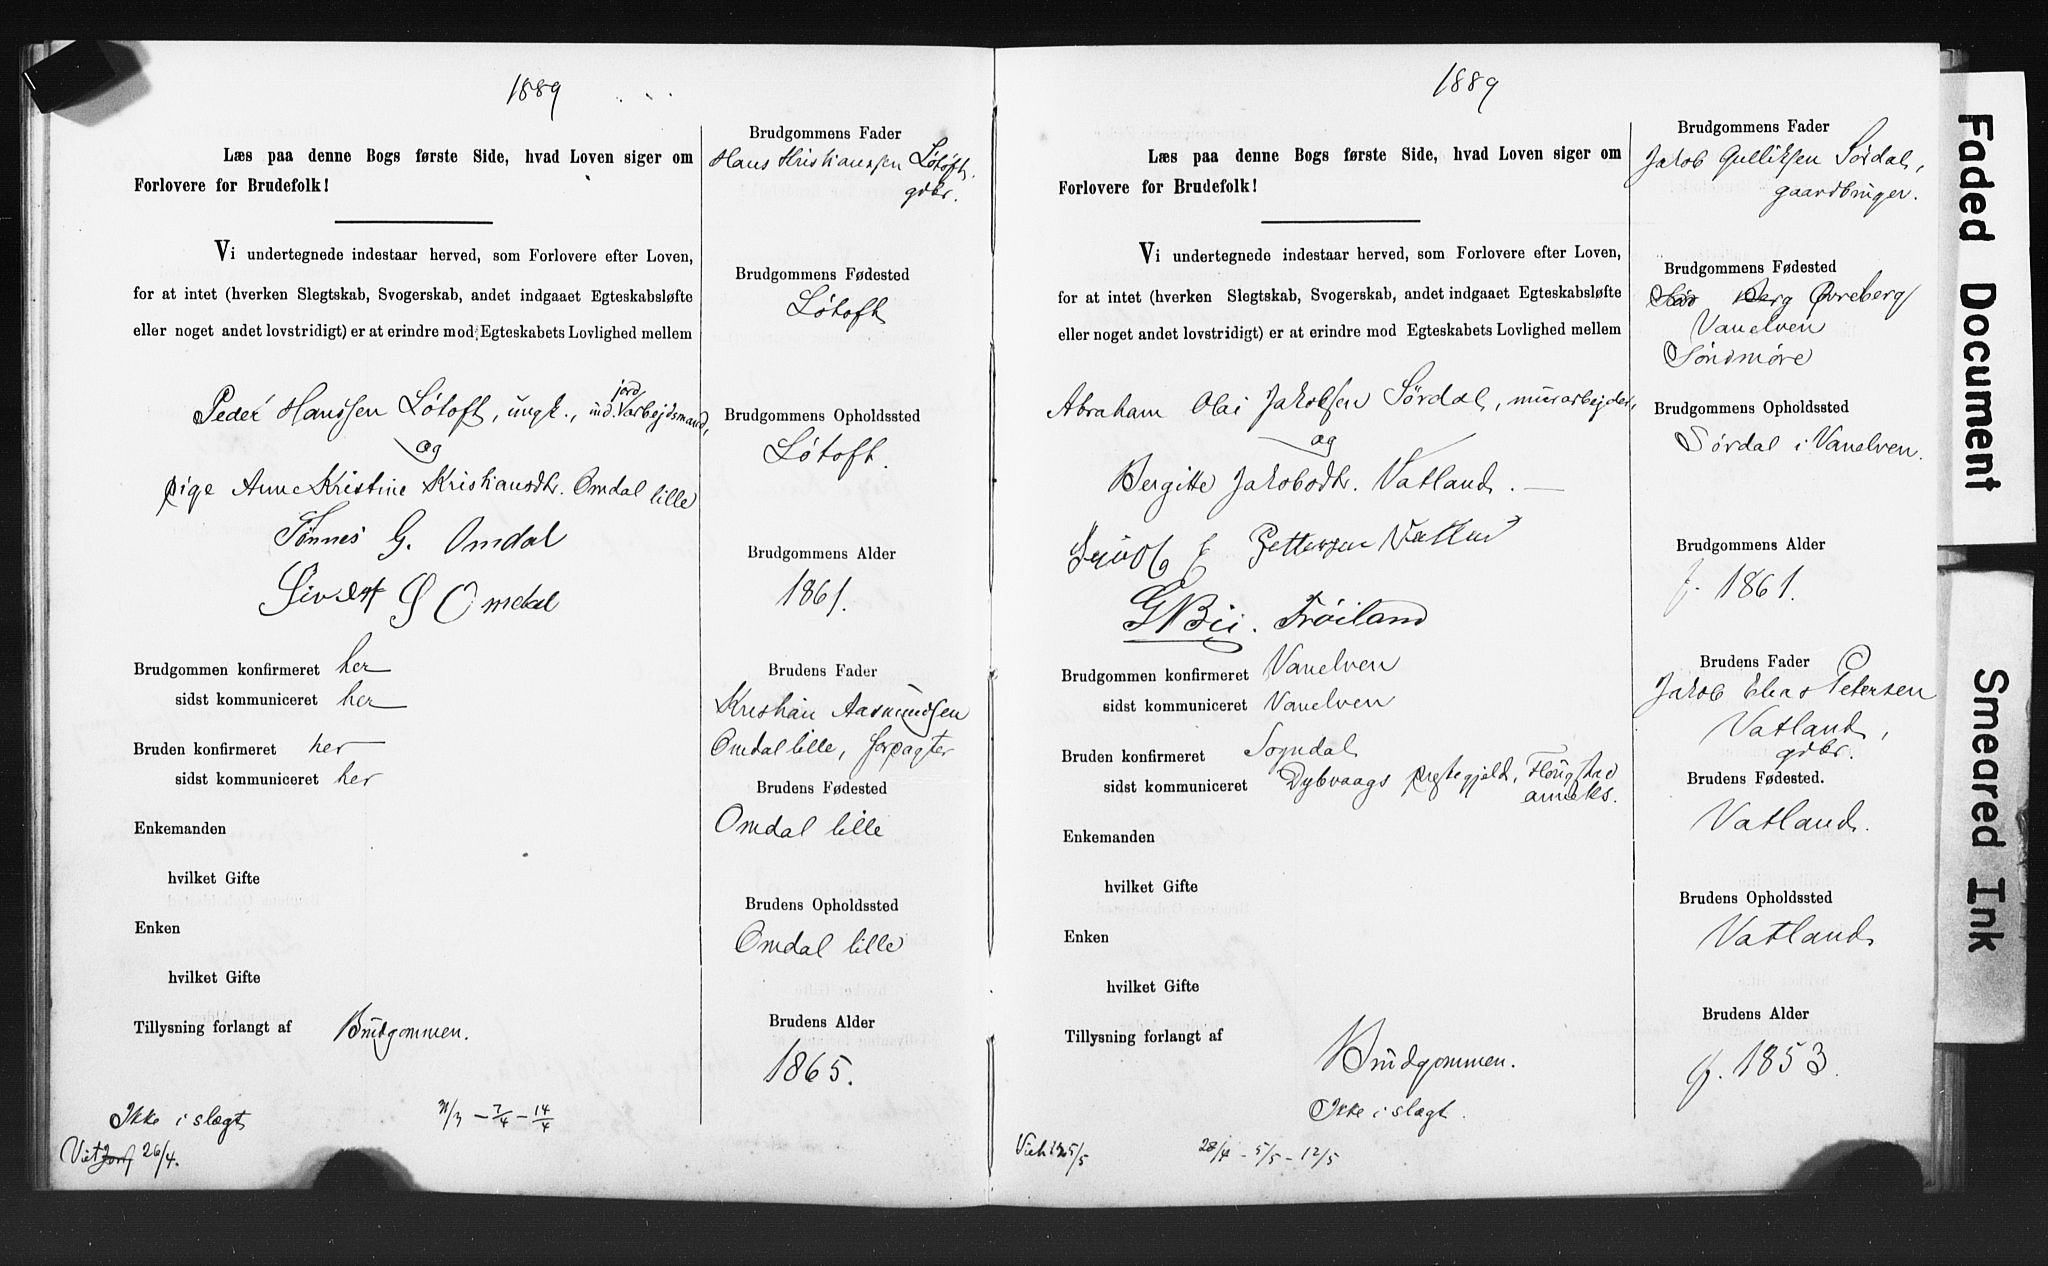 1889
Læs paa denne Bogs første Side, hvad Loven siger om
Forlovere for Brudefolk!
Vi undertegnede indestaar herved, som Forlovere efter Loven,
for at intet (hverken Slegtskab, Svogerskab, andet indgaaet Egteskabsløfte
eller noget andet lovstridigt) er at erindre mod Egteskabets Lovlighed mellem
Peder Hanssen Løtoft, ungk., ind. jordarbejdsmand,
og
pige Anne Kristine Kristiansdtr. Omdal lille
Tønnes G. Omdal
Sivert S Omdal
Brudgommen konfirmeret her
sidst kommuniceret her
Bruden konfirmeret her
sidst kommuniceret her
Enkemanden
hvilket Gifte
Enken
hvilket Gifte
Tillysning forlangt af Brudgommen.
Ikke i slægt
31/3 - 7/4 - 14/4
Viet 26/4.
Brudgommens Fader
Hans Kristianssen Løtoft.
gdbr.
Brudgommens Fødested
Løtoft
Brudgommens Opholdssted
Løtoft.
Brudgommens Alder
1861.
Brudens Fader
Kristian Aasmundsen
Omdal lille, forpagter
Brudens Fødested
Omdal lille
Brudens Opholdssted
Omdal lille
Brudens Alder
1865.
1889
Læs paa denne Bogs første Side, hvad Loven siger om
Forlovere for Brudefolk!
Vi undertegnede indestaar herved, som Forlovere efter Loven,
for at intet (hverken Slegtskab, Svogerskab, andet indgaaet Egteskabsløfte
eller noget andet lovstridigt) er at erindre mod Egteskabets Lovlighed mellem
Abraham Olai Jakobsen Sørdal, murarbejder,
og
Bergitte Jakobsdtr. Vatland.
Pettersen
Frøiland
Brudgommen konfirmeret Vanelven
sidst kommuniceret Vanelven
Bruden konfirmeret Sogndal
sidst kommuniceret Dybvaags prestegjeld, Flougstad
anneks.
Enkemanden
hvilket Gifte
Enken
hvilket Gifte
Tillysning forlangt af
Brudgommen.
Ikke i slægt.
28/4 - 5/5 - 12/5
Brudgommens Fader
Jakob Gulliksen Sørdal,
gaardbruger.
Brudgommens Fødested
Berg Øvreberg
Vanelven
Søndmøre
Brudgommens Opholdssted
Sørdal i Vanelven.
Brudgommens Alder
f. 1861.
Brudens Fader
Jakob Elias Petersen
Vatland,
gdbr.
Brudens Fødested.
Vatland.
Brudens Opholdssted
Vatland
Brudens Alder
f. 1853
Faded Document
Smeared Ink